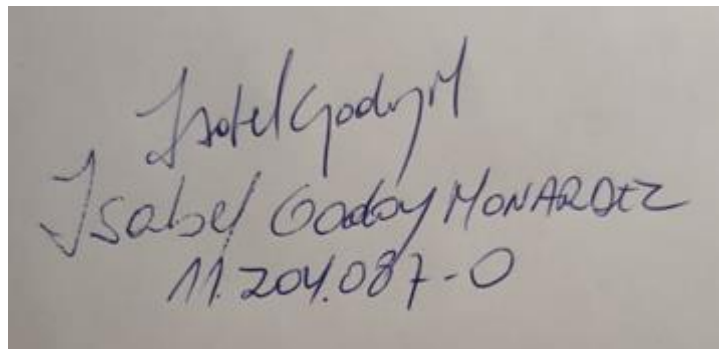 Isabel Godoy M
Isabel Godoy MONARDEZ
11.204.087-0